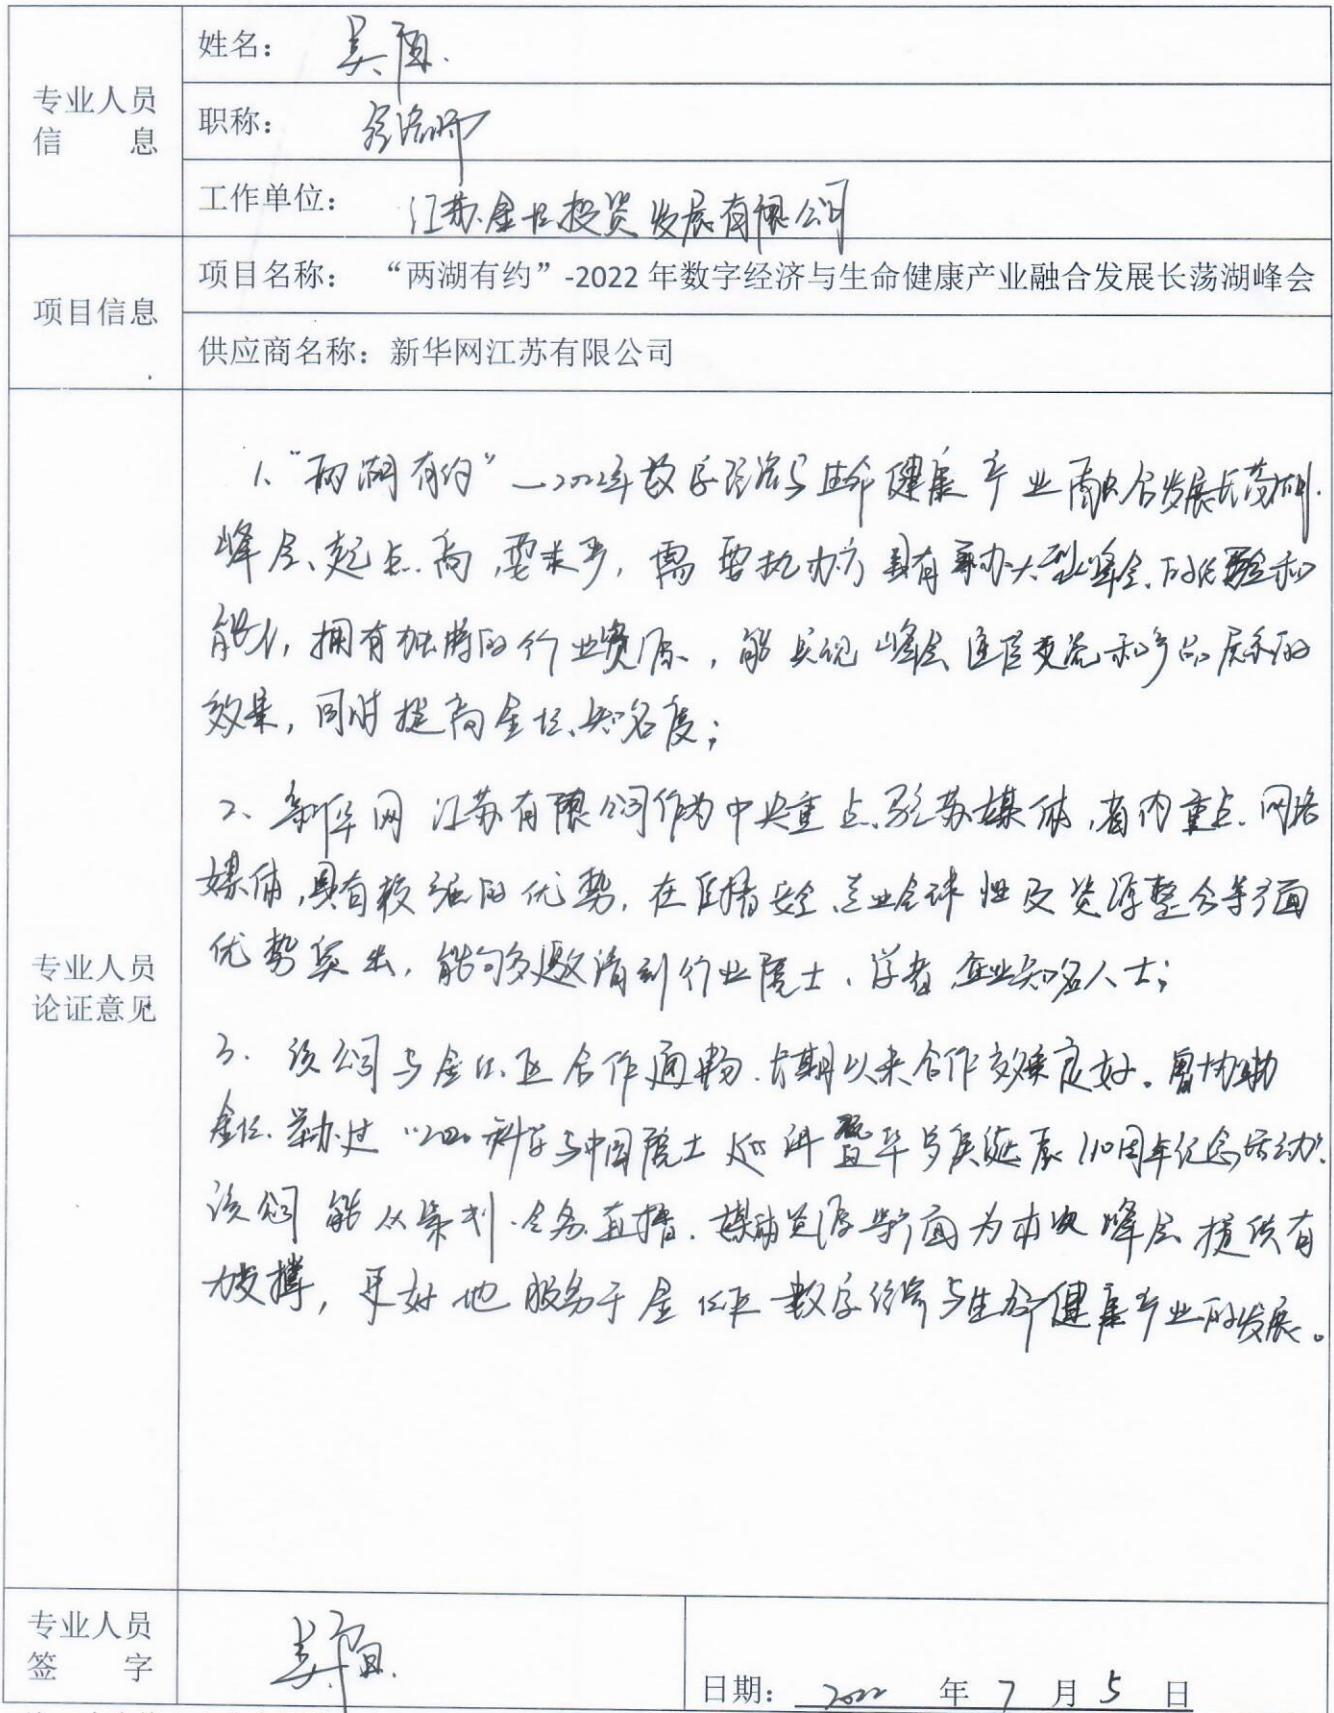 专业人员
信 息
姓名：吴
职称：经济师
工作单位：江苏金坛投资发展有限公司
项目信息
项目名称：“两湖有约”-2022 年数字经济与生命健康产业融合发展长荡湖峰会
供应商名称：新华网江苏有限公司
专业人员
论证意见
1、“两湖有约”—2022年数字经济与生命健康产业融合发展长荡湖
峰会、起点高，要求严，需要执办方具有承办大型峰会的经验和
能力，拥有独特的行业资源，能实现峰会宣传交流和产品展示的
效果，同时提高金坛知名度；
2、新华网江苏有限公司作为中央重点驻苏媒体，省内重点网络
媒体，具有较强的优势，在直播安全、专业全球性及资源整合等方面
优势突出，能够邀请到行业院士、学者、企业知名人士；
3、该公司与金坛区合作通畅、长期以来合作效果良好。曾协助
金坛举办过“2020科学与中国院士巡讲暨华罗庚诞辰110周年纪念活动”。
该公司能从策划、会务、直播、媒体资源等方面为本次峰会提供有
力支撑，更好地服务于金坛区数字经济与生命健康产业的发展。
专业人员
签 字
吴
日期：2022 年 7 月 5 日